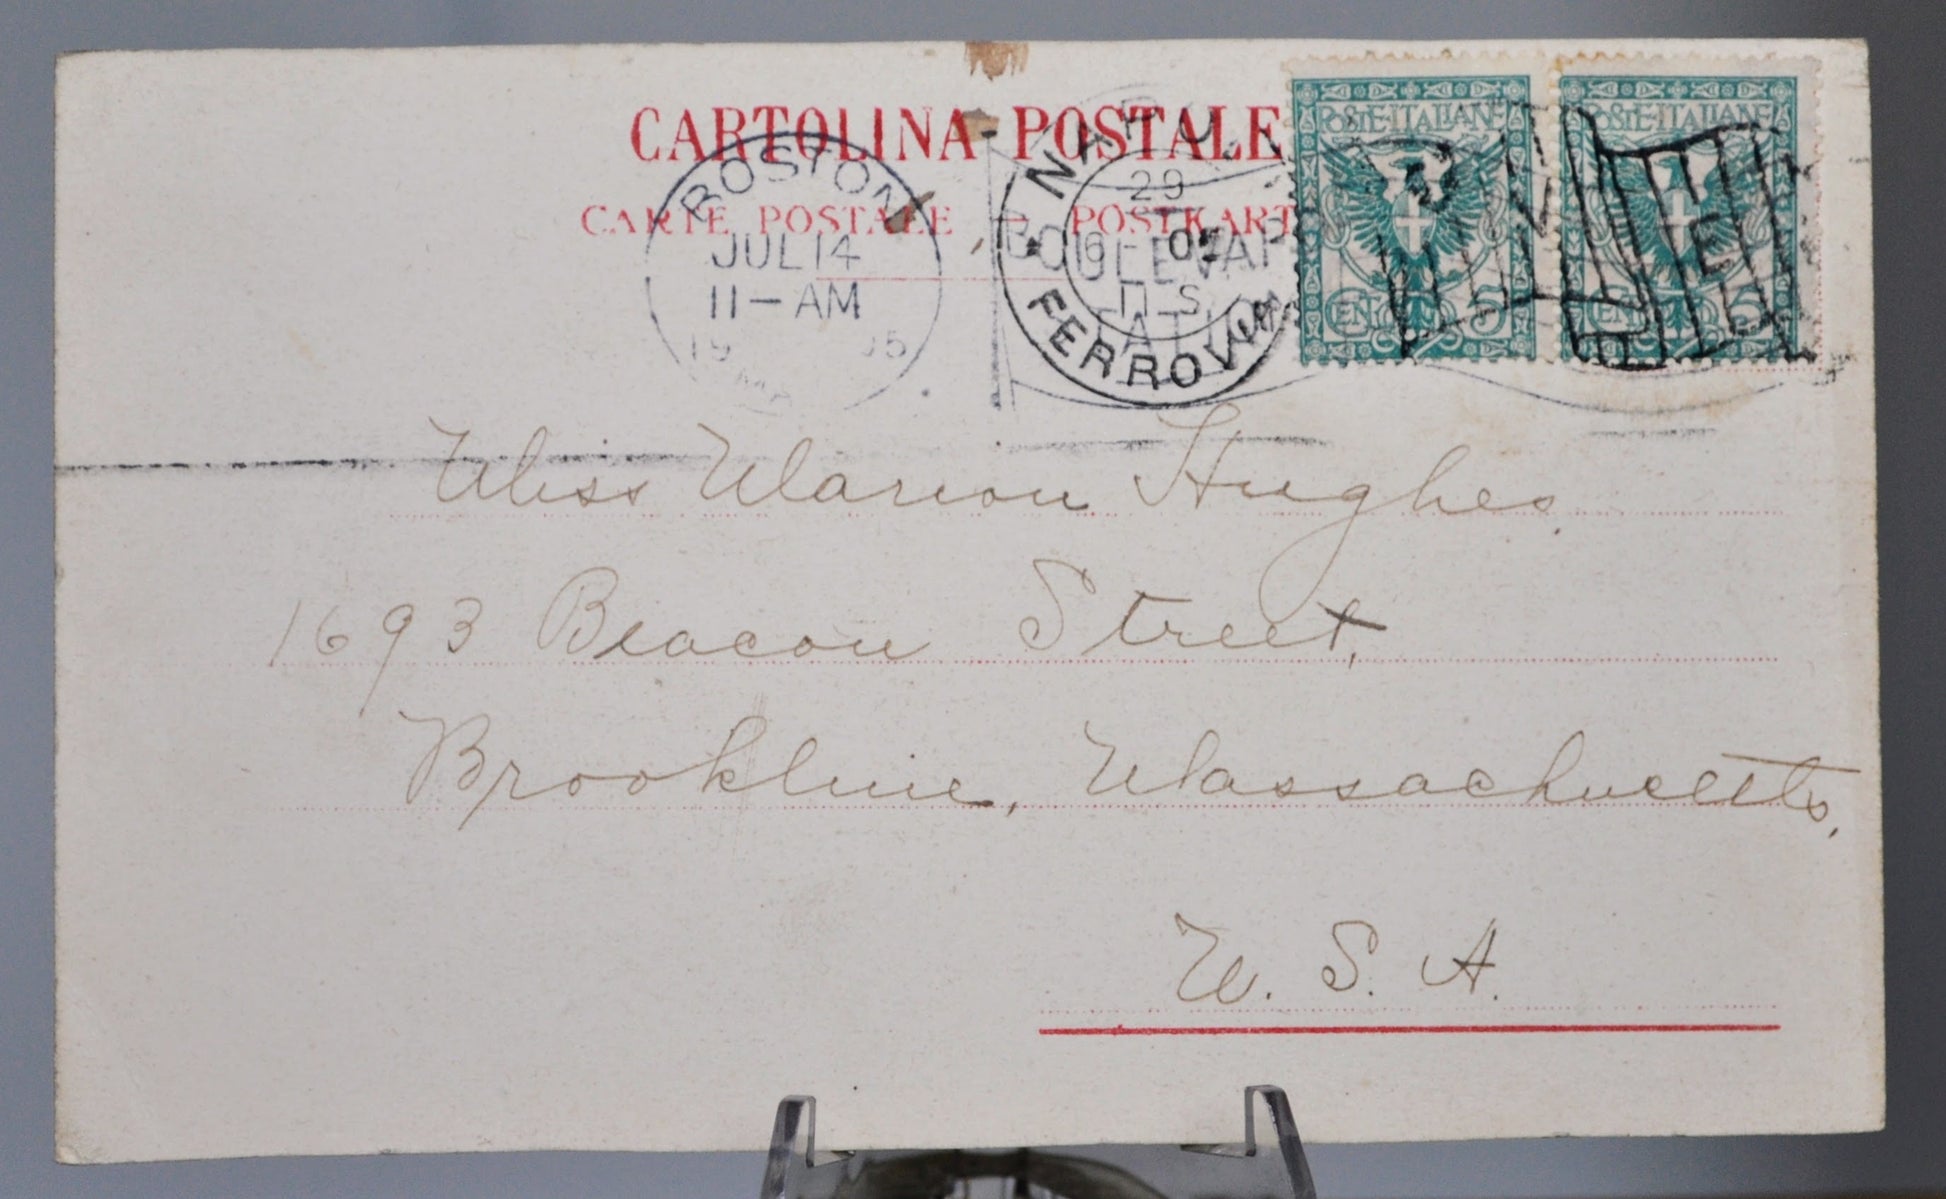 CARTOLINA POSTALE
CARTE POSTALE – POSTKART
BOSTON
JUL 14
11 – AM
19 05
MA
NAPOLI
29
6 05
11 S
FERROVIA
BOULEVAR
STATI
POSTE ITALIANE
CENT 5
POSTE ITALIANE
CENT 5
Miss Marion Hughes.
1693 Beacon Street,
Brookline, Massachusetts,
U. S. A.